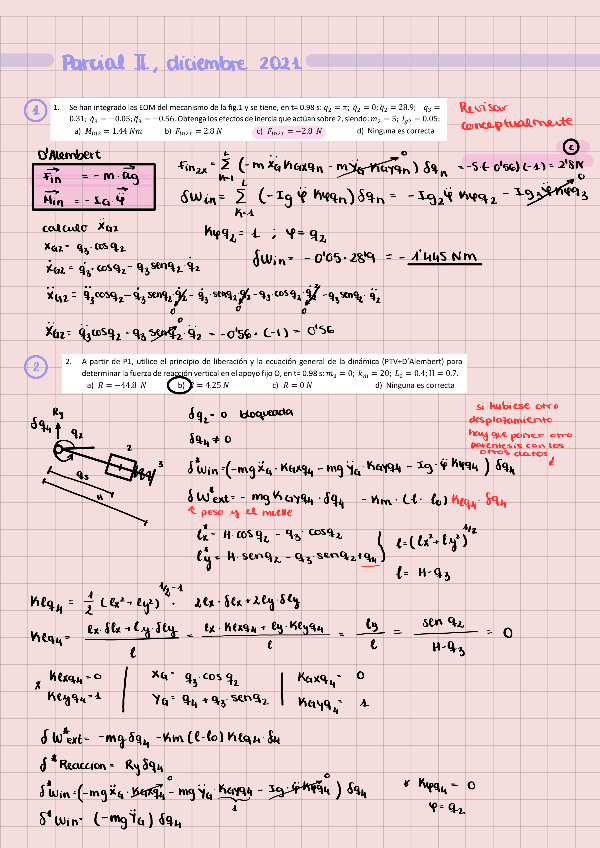 Parcial II, diciembre 2021
1
1. Se han integrado las EOM del mecanismo de la fig.1 y se tiene, en t= 0.98 s: q₂ = π; q̇₂ = 0; q̈₂ = 28.9; q₃ =
0.31; q̇₃ = −0.05; q̈₃ = −0.56. Obtenga los efectos de inercia que actúan sobre 2, siendo: m₂ = 5; I_g₂ = 0.05;
a) M_in2 = 1.44 Nm b) F_in2x = 2.8 N c) F_in2x = −2.8 N d) Ninguna es correcta
Revisar
conceptualmente
D'Alembert
Fin = −m·ag
Min = −IG φ̈
c
Fin2x = Σ (−m ẍG KGxqn − m ÿG KGyqn) δqn = −5·(−0'56)(−1) = 2'8 N
δWin = Σ (−Ig φ̈ Kφqn) δqn = −Ig₂ φ̈ Kφq₂ − Ig₃ φ̈ Kφq₃
Kφq₂ = 1 ; φ = q₂
δWin = −0'05·28'9 = −1'445 Nm
calculo ẍG2
xG2 = q₃·cosq₂
ẋG2 = q̇₃·cosq₂ − q₃ senq₂·q̇₂
ẍG2 = q̈₃cosq₂ − q̇₃ senq₂ q̇₂ − q̇₃·senq₂ q̇₂ − q₃ cosq₂ q̇₂² − q₃ senq₂·q̈₂
ẍG2 = q̈₃cosq₂ − q₃ senq₂·q̈₂ = −0'56·(−1) = 0'56
2
2. A partir de P1, utilice el principio de liberación y la ecuación general de la dinámica (PTV+D'Alembert) para
determinar la fuerza de reacción vertical en el apoyo fijo O, en t= 0.98 s: m₃ = 0; k_m = 20; L₀ = 0.4; H = 0.7.
a) R = −44.8 N b) R = 4.25 N c) R = 0 N d) Ninguna es correcta
Ry
δq4
q2
2
3
q3
H
δq₂ = 0 bloqueada
δq₄ ≠ 0
si hubiese otro
desplazamiento
hay que poner otro
potentesis con los
otros claros
δ*Win = (−mg ẍG·KGxq4 − mg ÿG·KGyq4 − Ig·φ̈ Kφq4) δq4
δW*ext = −mg KGyq4·δq4 − Km·(l−l₀) Klq4·δq4
peso y el muelle
lx* = H·cosq2 − q3·cosq2
ly* = H·senq2 − q3·senq2 + q4
l = (lx² + ly²)^1/2
l = H−q3
Klq4 = 1/2 (lx² + ly²)^1/2−1 · 2lx·δlx + 2ly·δly
Klq4 = lx·δlx + ly·δly / l = lx·Klxq4 + ly·Klyq4 / l = ly / l = sen q2 / H−q3 = 0
* Klxq4 = 0
Klyq4 = 1
XG = q3·cosq2
YG = q4 + q3·senq2
KGxq4 = 0
KGyq4 = 1
δW*ext = −mg·δq4 − Km(l−l₀) Klq4·δ4
δ*Reaccion = Ry δq4
δ*Win = (−mg ẍG·KGxq4 − mg ÿG·KGyq4 − Ig·φ̈ Kφq4) δq4
δ*Win = (−mg ÿG) δq4
* Kφq4 = 0
φ = q2